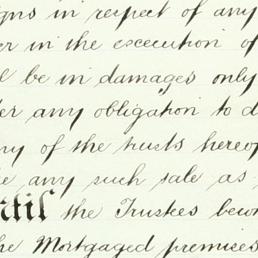 igns in respect of any
er in the execution of
ll be in damages only
der any obligation to d
ny of the trusts hereof
ke any such sale as
ntil the Trustees becom
he Mortgaged premises